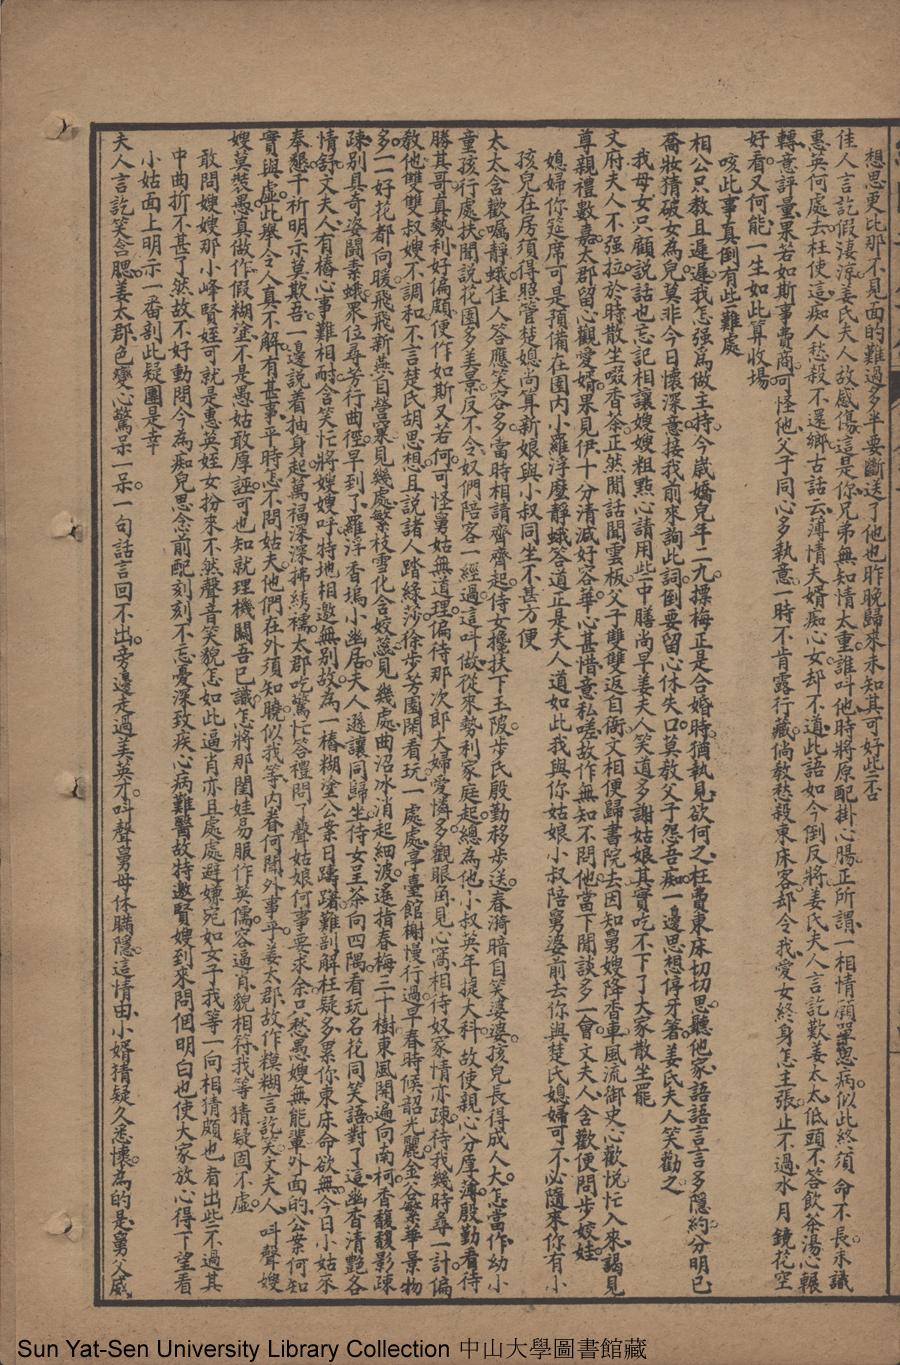 想思更比那不見面的難過多多半要斷送了他也昨晚歸來未知其可好些否
佳人言訖假淒涼姜氏夫人故感傷這是你兄弟無知情太重誰叫他時將原配掛心腸正所謂一相情願單思病似此終須命不長未識
惠英何處去枉使這痴人愁殺不還鄉古話云薄情夫婿痴心女却不道此語如今倒反將姜氏夫人言訖歎姜太太低頭不答飲茶湯心輾
轉意評量果若如斯事費商可怪他父子同心多執意一時不肯露行藏倘教愁殺東床客却令我愛女終身怎主張止不過水月鏡花空
好看又何能一生如此算收場
咳此事真倒有些難處
相公只教且遲遲我怎强爲做主持今歲嬌兒年二九摽梅正是合婚時猶執見欲何之枉費東床切切思聽他家語語言言多隱約分明已
喬妝猜破女為兒莫非今日懷深意接我前來詢此詞倒要留心休失口莫教父子怨吾痴一邊思想停牙箸姜氏夫人笑勸之
我母女只顧說話也忘記相讓嫂嫂粗點心請用些中膳尚早姜夫人笑道多謝姑娘其實吃不下了大家散坐罷
文府夫人不强拉於時散坐啜香茶正然閒話聞雲板父子雙雙返自衙文相便歸書院去因知舅嫂降香車風流御史心歡悅忙入來謁見
尊親禮數嘉太郡留心觀愛婿果見伊十分清減好容華心甚惜意私嗟故作無知不問他當下閒談多一會文夫人含歡便問步姣娃
媳婦你筵席可是預備在園內小羅浮麼靜蛾答道正是夫人道如此我與你姑娘小叔陪舅婆前去你與楚氏媳婦可不必隨來你有小
孩兒在房須得照管楚媳尚算新娘與小叔同坐不甚方便
太太含歡囑靜蛾佳人答應笑容多當時相請齊齊起侍女攙扶下玉陂步氏殷勤移步送春漪暗自笑婆婆孩兒長得成人大怎當作幼小
童孩行處扶聞說花園多美景反不令奴們陪客一經過這叫做從來勢利家庭起總為他小叔英年捷大科故使親心分厚薄殷勤看待
勝其哥真勢利好偏頗便作如斯又若何可怪舅姑無道理偏待那次郎夫婦愛憐多觀眼角見心窩相待奴家情亦疎待我幾時尋一計偏
教他雙雙叔嫂不調和不言楚氏胡思想且說諸人踏綠莎徐步芳園閒看玩一處處亭臺館榭慢行過早春時候韶光麗金谷繁華景物
多一一好花都向暖飛飛新燕自營窠見幾處繁枝雪化含姣蕊見幾處曲沼冰消起細波遙指春梅三十樹東風開遍向南柯香馥馥影疎
疎別具奇姿鬪素娥眾位尋芳行曲徑早到了羅浮香塢小幽居夫人遜讓同歸坐侍女呈茶向四隅看玩名花同笑語對了這幽香清艷各
情舒文夫人有樁心事難相耐含笑忙將嫂嫂呼特地相邀無別故為一樁糊塗公案日躊躇難剖解枉疑多累你東床命欲無今日小姑來
奉懇千祈明示莫欺吾一邊說着抽身起萬福深深拂綉襦太郡吃驚忙答禮問了聲姑娘何事要求余只愁愚嫂無能輩外面的公案何知
實與虛此舉令人真不解有甚事平時怎不問姑夫他們在外須知曉似我等內眷何關外事乎姜太郡故作模糊言訖笑文夫人叫聲嫂
嫂莫裝愚真做作假糊塗不是愚姑敢厚誣可也知就理機關吾已識怎將那閨娃易服作英儒容逼肖貌相符我等猜疑固不虛
敢問嫂嫂那小峰賢姪可就是惠英姪女扮來不然聲音笑貌怎如此逼肖亦且處處避嫌宛如女子我等一向相猜頗也看出些不過其
中曲折不甚了然故不好動問今為痴兒思念前配刻刻不忘憂深致疾心病難醫故特邀賢嫂到來問個明白也使大家放心得下望看
小姑面上明示一番剖此疑團是幸
夫人言訖笑含腮姜太郡色變心驚呆一呆一句話言回不出旁邊走過美英才叫聲舅母休瞞隱這情由小婿猜疑久悉懷為的是舅父威
Sun Yat-Sen University Library Collection 中山大學圖書館藏